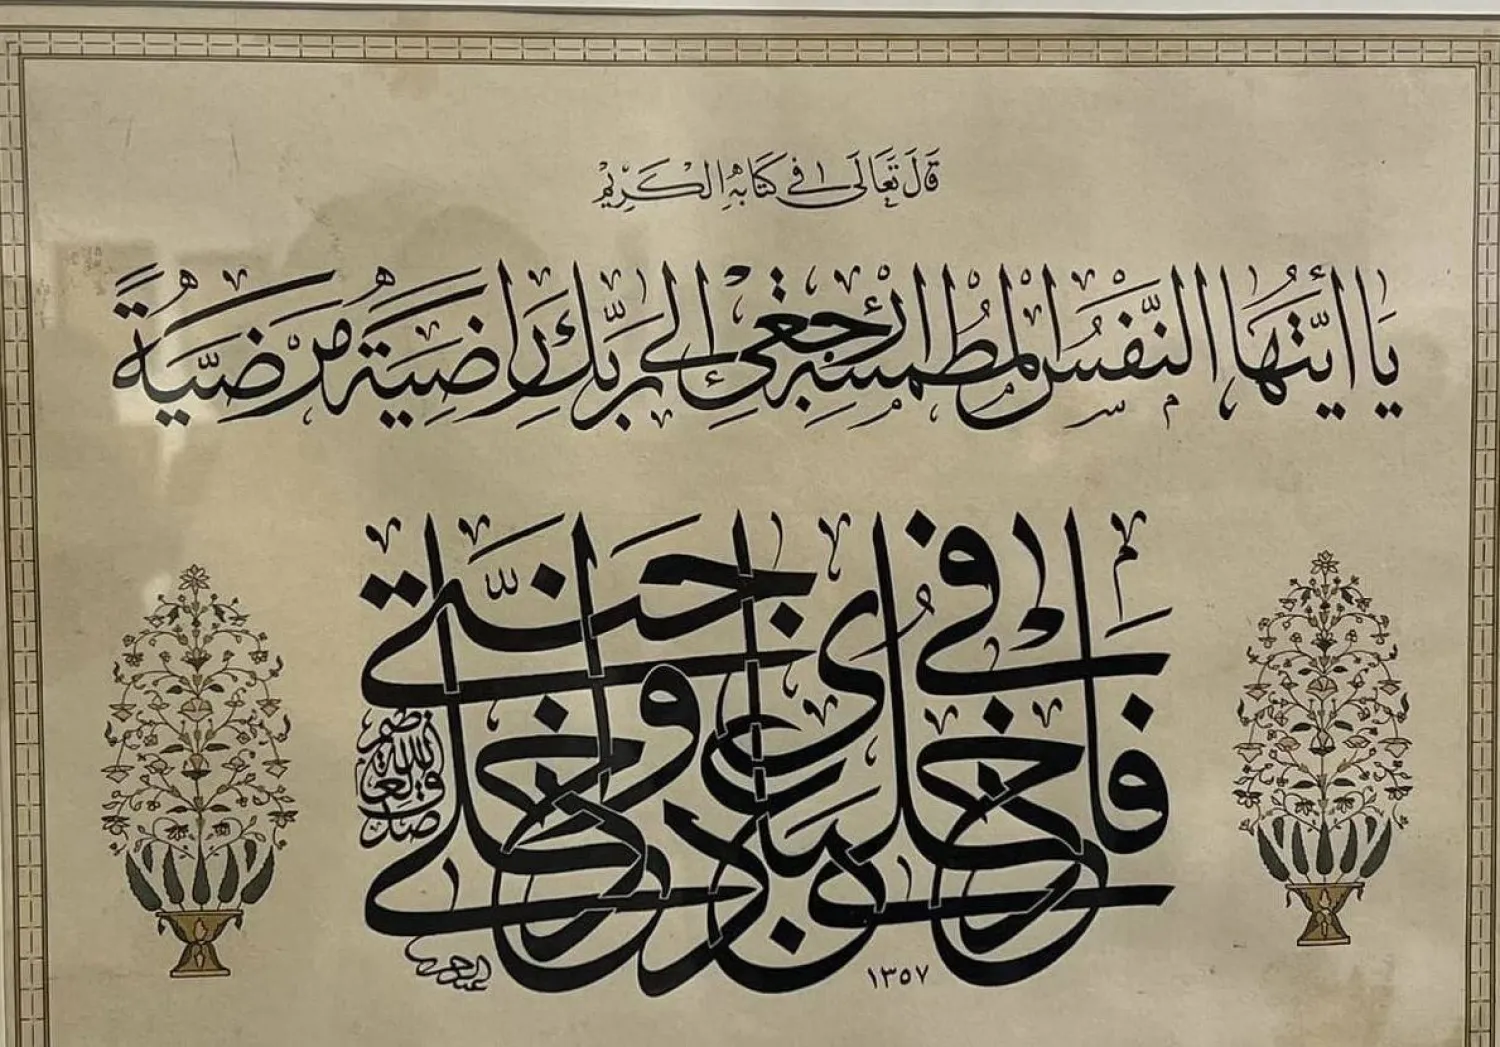 قَالَ تَعَالَى فِي كِتَابِهِ الْكَرِيْمِ
يَا أَيَّتُهَا النَّفْسُ الْمُطْمَئِنَّةُ ارْجِعِي إِلَى رَبِّكِ رَاضِيَةً مَرْضِيَّةً
فَادْخُلِي فِي عِبَادِي وَادْخُلِي جَنَّتِي
صدق الله العظيم
١٣٥٧